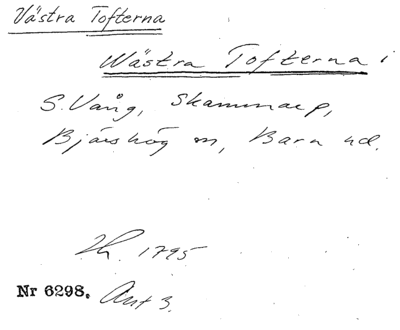 Västra Tofterna
Wästra Tofterna i
S. Vång, Skammarp,
Bjärshög m, Bara hd.
Lh. 1795
Nr 6298. Akt 3.